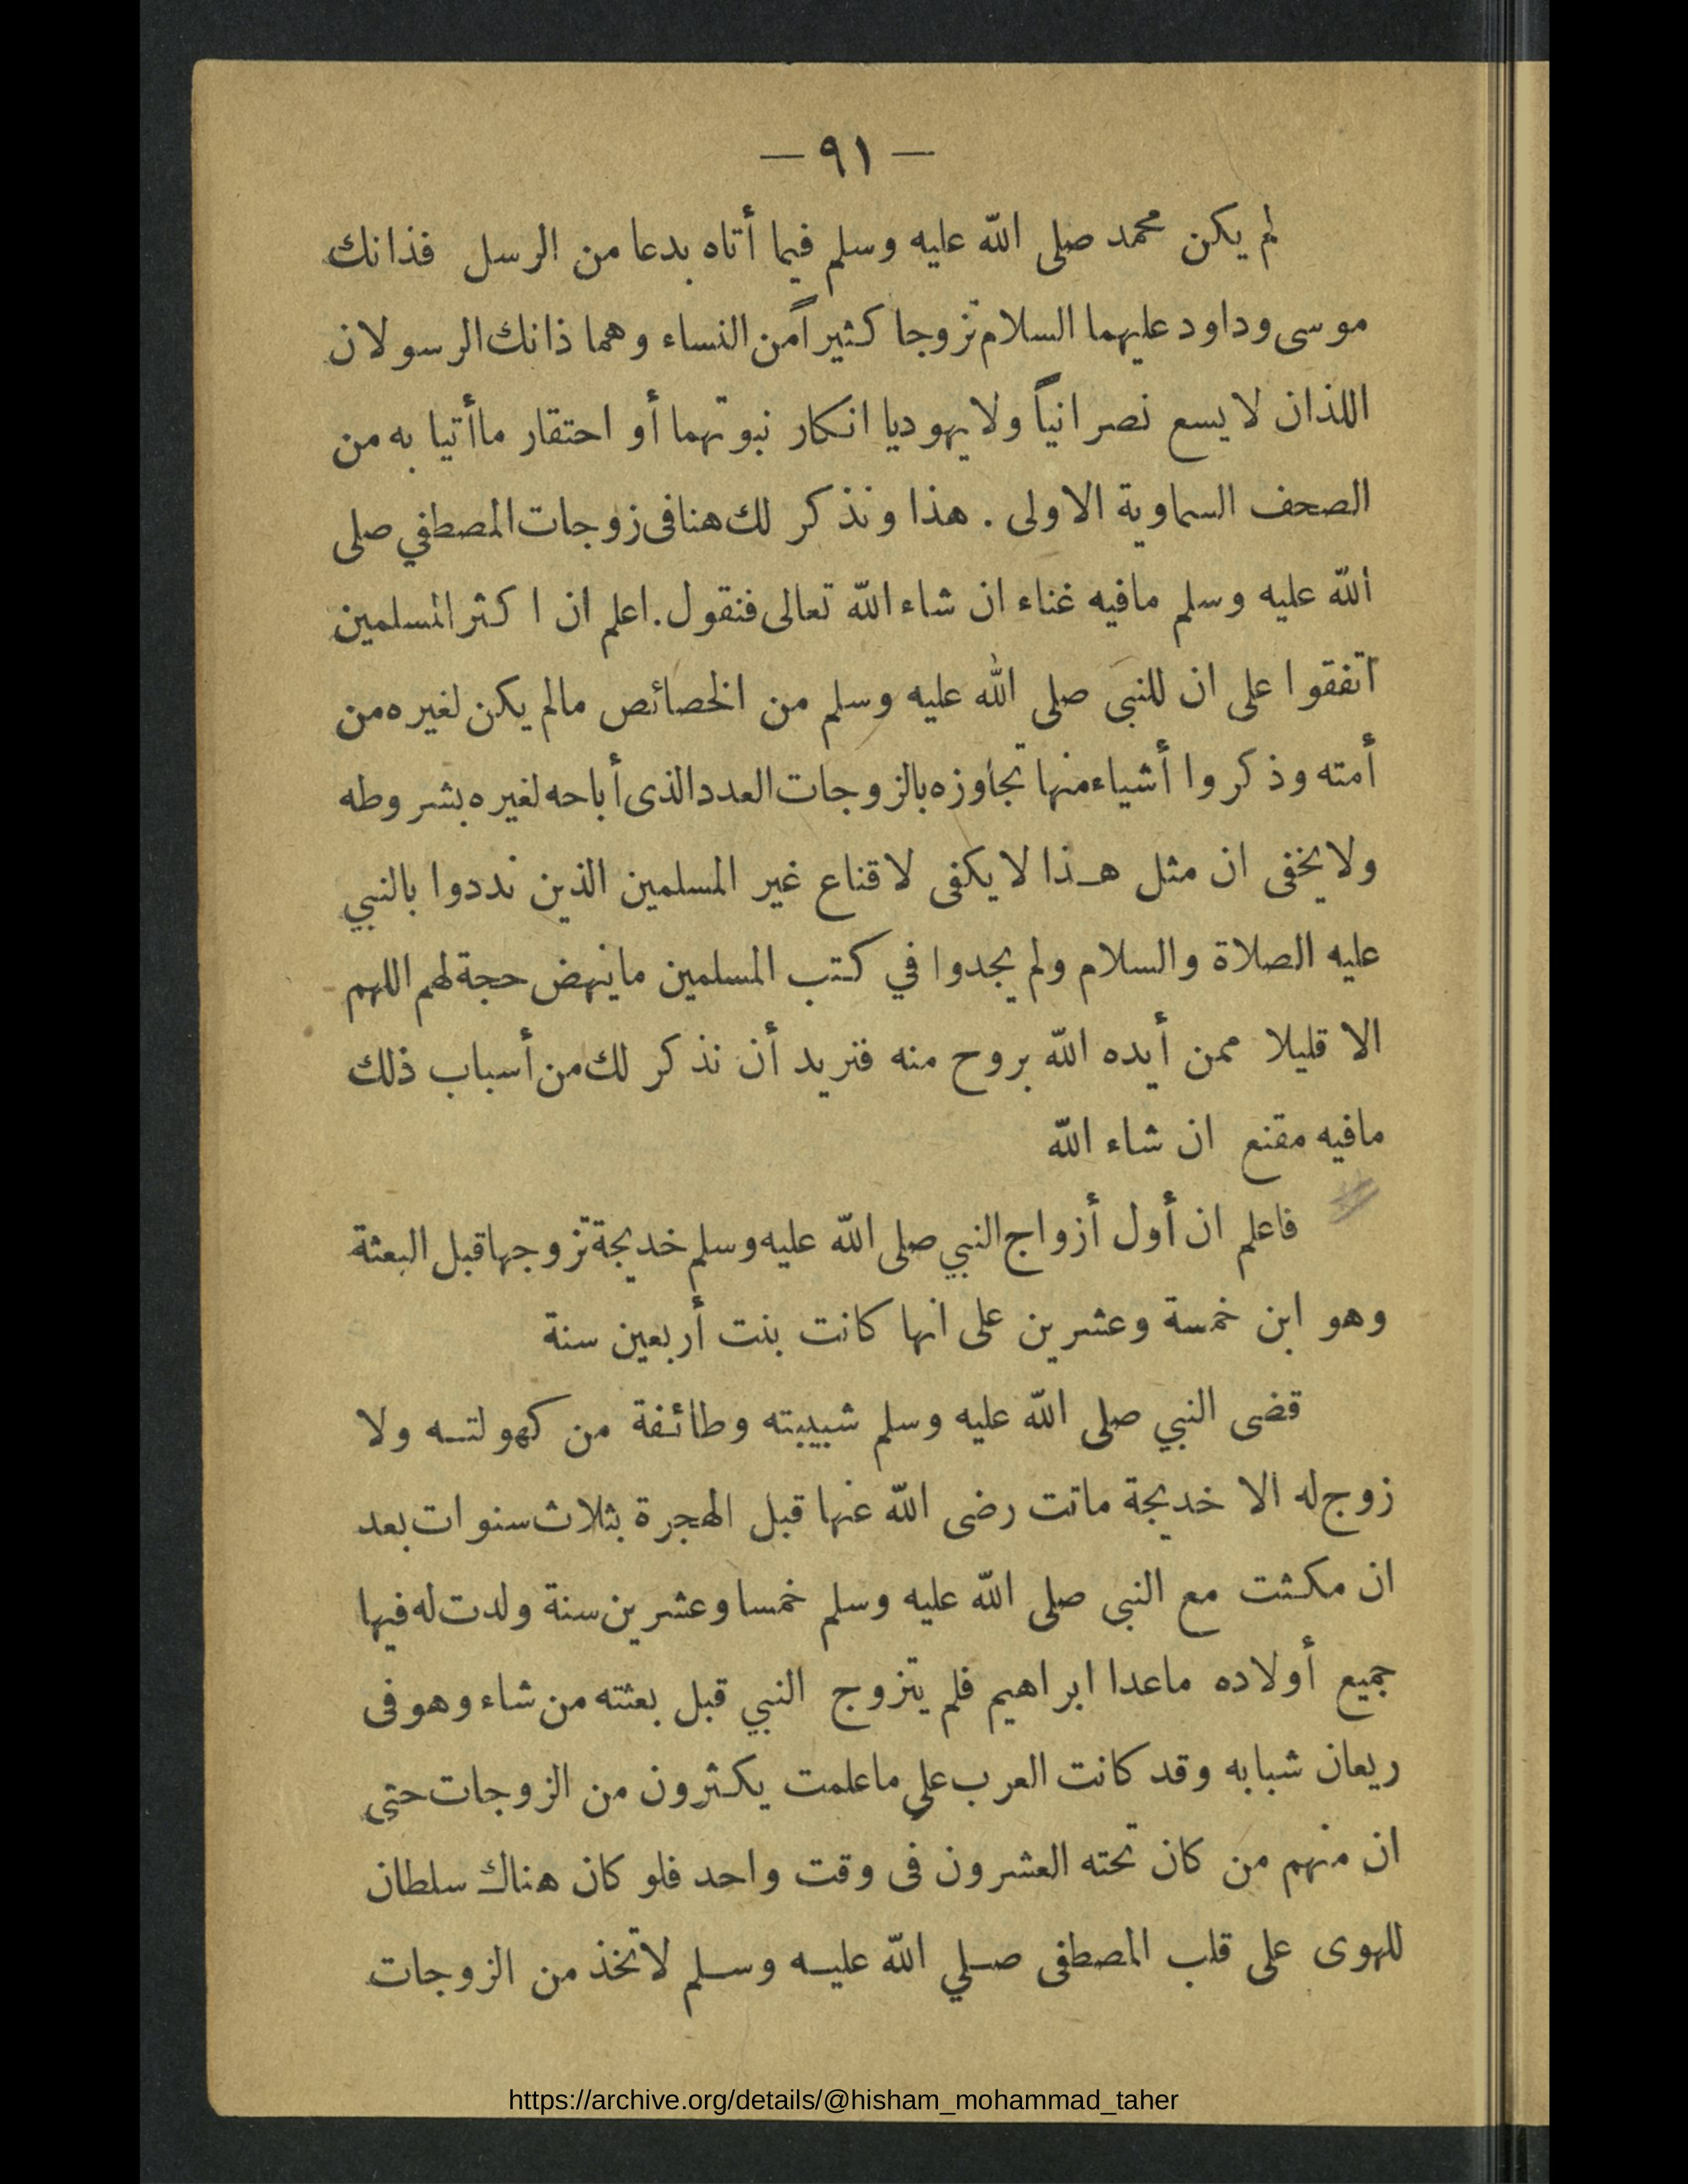 — ٩١ —
لم يكن محمد صلى الله عليه وسلم فيما أتاه بدعا من الرسل فذانك
موسى وداود عليهما السلام تزوجا كثيراً من النساء وهما ذانك الرسولان
اللذان لا يسع نصرانياً ولا يهوديا انكار نبوتهما أو احتقار ما أتيا به من
الصحف السماوية الاولى . هذا ونذكر لك هنا فى زوجات المصطفي صلى
الله عليه وسلم مافيه غناء ان شاء الله تعالى فنقول . اعلم ان اكثر المسلمين
اتفقوا على ان للنبى صلى الله عليه وسلم من الخصائص مالم يكن لغيره من
أمته وذكروا أشياء منها تجاوزه بالزوجات العدد الذى أباحه لغيره بشروطه
ولا يخفى ان مثل هـذا لا يكفى لاقناع غير المسلمين الذين نددوا بالنبي
عليه الصلاة والسلام ولم يجدوا في كتب المسلمين ماينهض حجة لهم اللهم
الا قليلا ممن أيده الله بروح منه فنريد أن نذكر لك من أسباب ذلك
مافيه مقنع ان شاء الله
فاعلم ان أول أزواج النبي صلى الله عليه وسلم خديجة تزوجها قبل البعثة
وهو ابن خمسة وعشرين على انها كانت بنت أربعين سنة
قضى النبي صلى الله عليه وسلم شبيبته وطائفة من كهولتـه ولا
زوج له الا خديجة ماتت رضى الله عنها قبل الهجرة بثلاث سنوات بعد
ان مكثت مع النبى صلى الله عليه وسلم خمسا وعشرين سنة ولدت له فيها
جميع أولاده ماعدا ابراهيم فلم يتزوج النبي قبل بعثته من شاء وهو فى
ريعان شبابه وقد كانت العرب علي ما علمت يكثرون من الزوجات حتى
ان منهم من كان تحته العشرون فى وقت واحد فلو كان هناك سلطان
للهوى على قلب المصطفى صـلي الله عليـه وسـلم لاتخذ من الزوجات
https://archive.org/details/@hisham_mohammad_taher